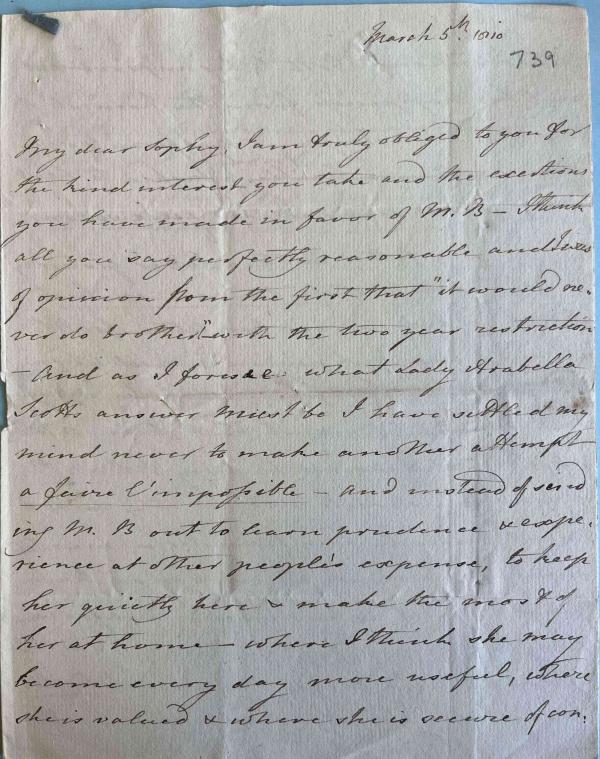 March 5th. 1810
739
My dear Sophy, I am truly obliged to you for
the kind interest you take and the exertions
you have made in favor of M. B – I think
all you say perfectly reasonable and I was
of opinion from the first that "it would ne-
ver do brother" – with the two year restriction
– And as I foresee what Lady Arabella
Scotts answer must be I have settled my
mind never to make another attempt
a faire l'impossible – and instead of send
ing M. B out to learn prudence & expe-
rience at other people's expense, to keep
her quietly here & make the most of
her at home – where I think she may
become every day more useful, where
she is valued & where she is secure of con-